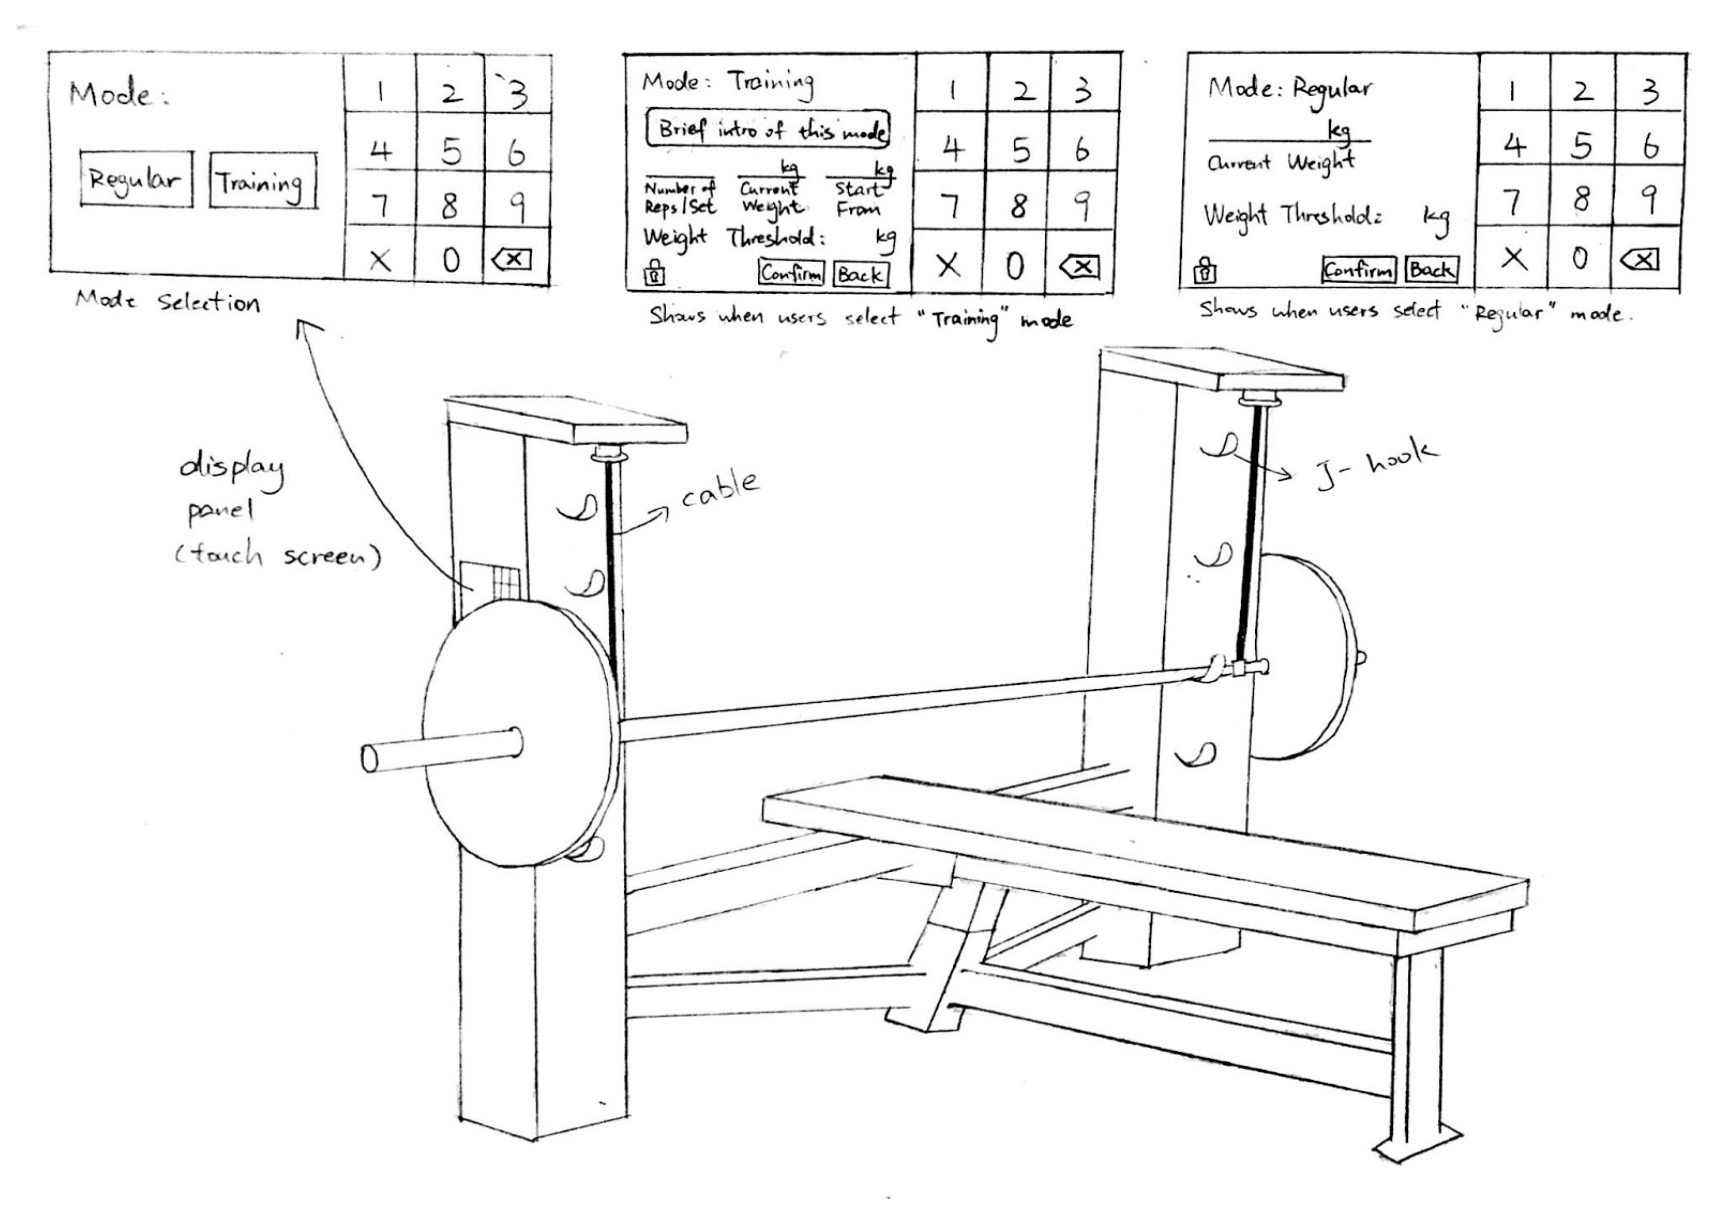 Mode:
Regular
Training
1 2 3
4 5 6
7 8 9
X 0
Mode Selection
Mode: Training
Brief intro of this mode
kg kg
Number of Current Start
Reps/Set Weight From
Weight Threshold: kg
Confirm Back
1 2 3
4 5 6
7 8 9
X 0
Shows when users select "Training" mode
Mode: Regular
kg
Current Weight
Weight Threshold: kg
Confirm Back
1 2 3
4 5 6
7 8 9
X 0
Shows when users select "Regular" mode.
display
panel
(touch screen)
cable
J-hook